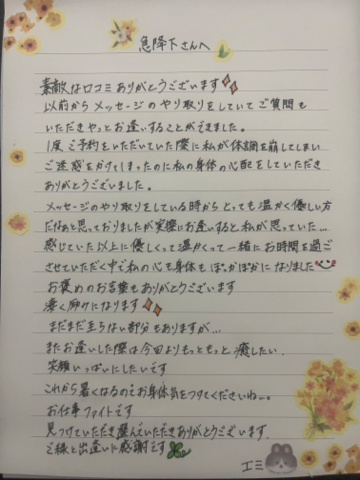 急降下さんへ
素敵な口コミありがとうございます
以前からメッセージのやり取りをしていてご質問も
いただきやっとお逢いすることができました。
1度ご予約をいただいていた際に私が体調を崩してしまい
ご迷惑をかけてしまったのに私の身体の心配をしていただき
ありがとうございました。
メッセージのやり取りをしている時からとっても温かく優しい方
だなぁと思っておりましたが実際にお逢いすると私が思っていた…
感じていた以上に優しくって温かくって一緒にお時間を過ご
させていただく中で私の心も身体もぽっかぽかになりました
お褒めのお言葉もありがとうございます
凄く励みになります
まだまだ至らない部分もありますが…
またお逢いした際は今回よりもっともっと癒したい、
笑顔いっぱいにしたいです
これから暑くなるのでお身体気をつけてくださいね…。
お仕事ファイトです
見つけていただき選んでいただきありがとうございます。
ご縁と出逢いに感謝です
エミ